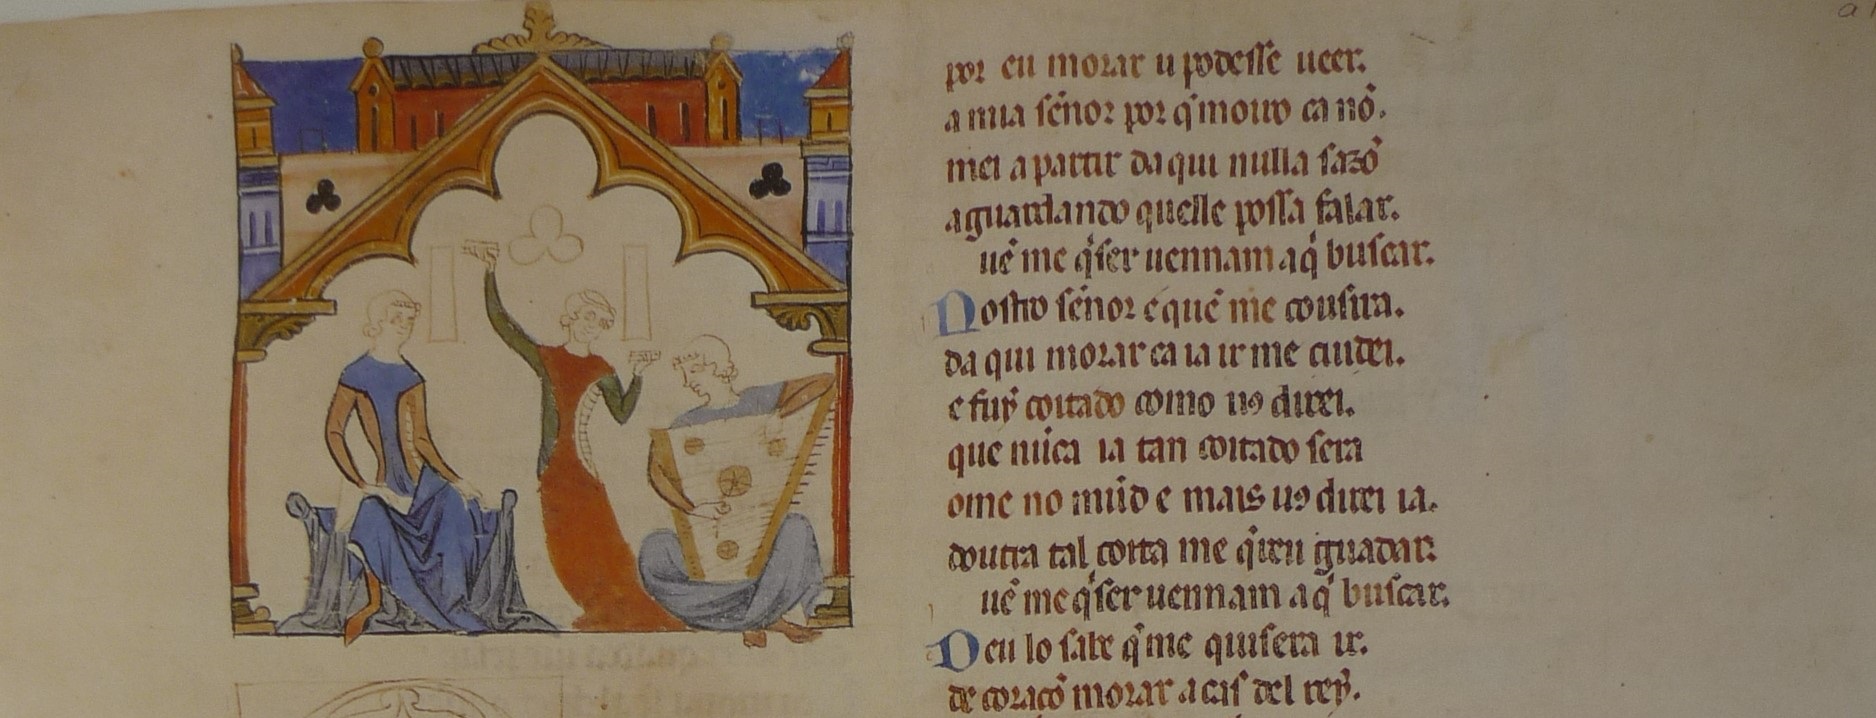 por eu morar u podesse ueer.
a mia señor por q̇ mouro ca nõ.
mei a partir da qui nulla sazõ
aguardando quelle possa falar.
uẽ me q̇ser uennam a q̇ buscar.
Nostro señor e quẽ me cousira.
da qui morar ca ia ir me cuidei.
e fuy coitado como uꝯ direi.
que nũca ia tan coitado sera
ome no mũd e mais uꝯ direi ia.
doutra tal coita me q̇reu guadar:
uẽ me q̇ser uennam a q̇ buscar.
Deu lo sabe q̇ me quisera ir.
de coraçõ morar a cas del rey.